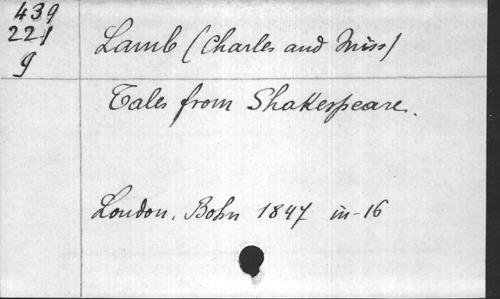 439
221
g
Lamb (Charles and Miss)
Tales from Shakespeare.
London, Bohn 1847 in-16